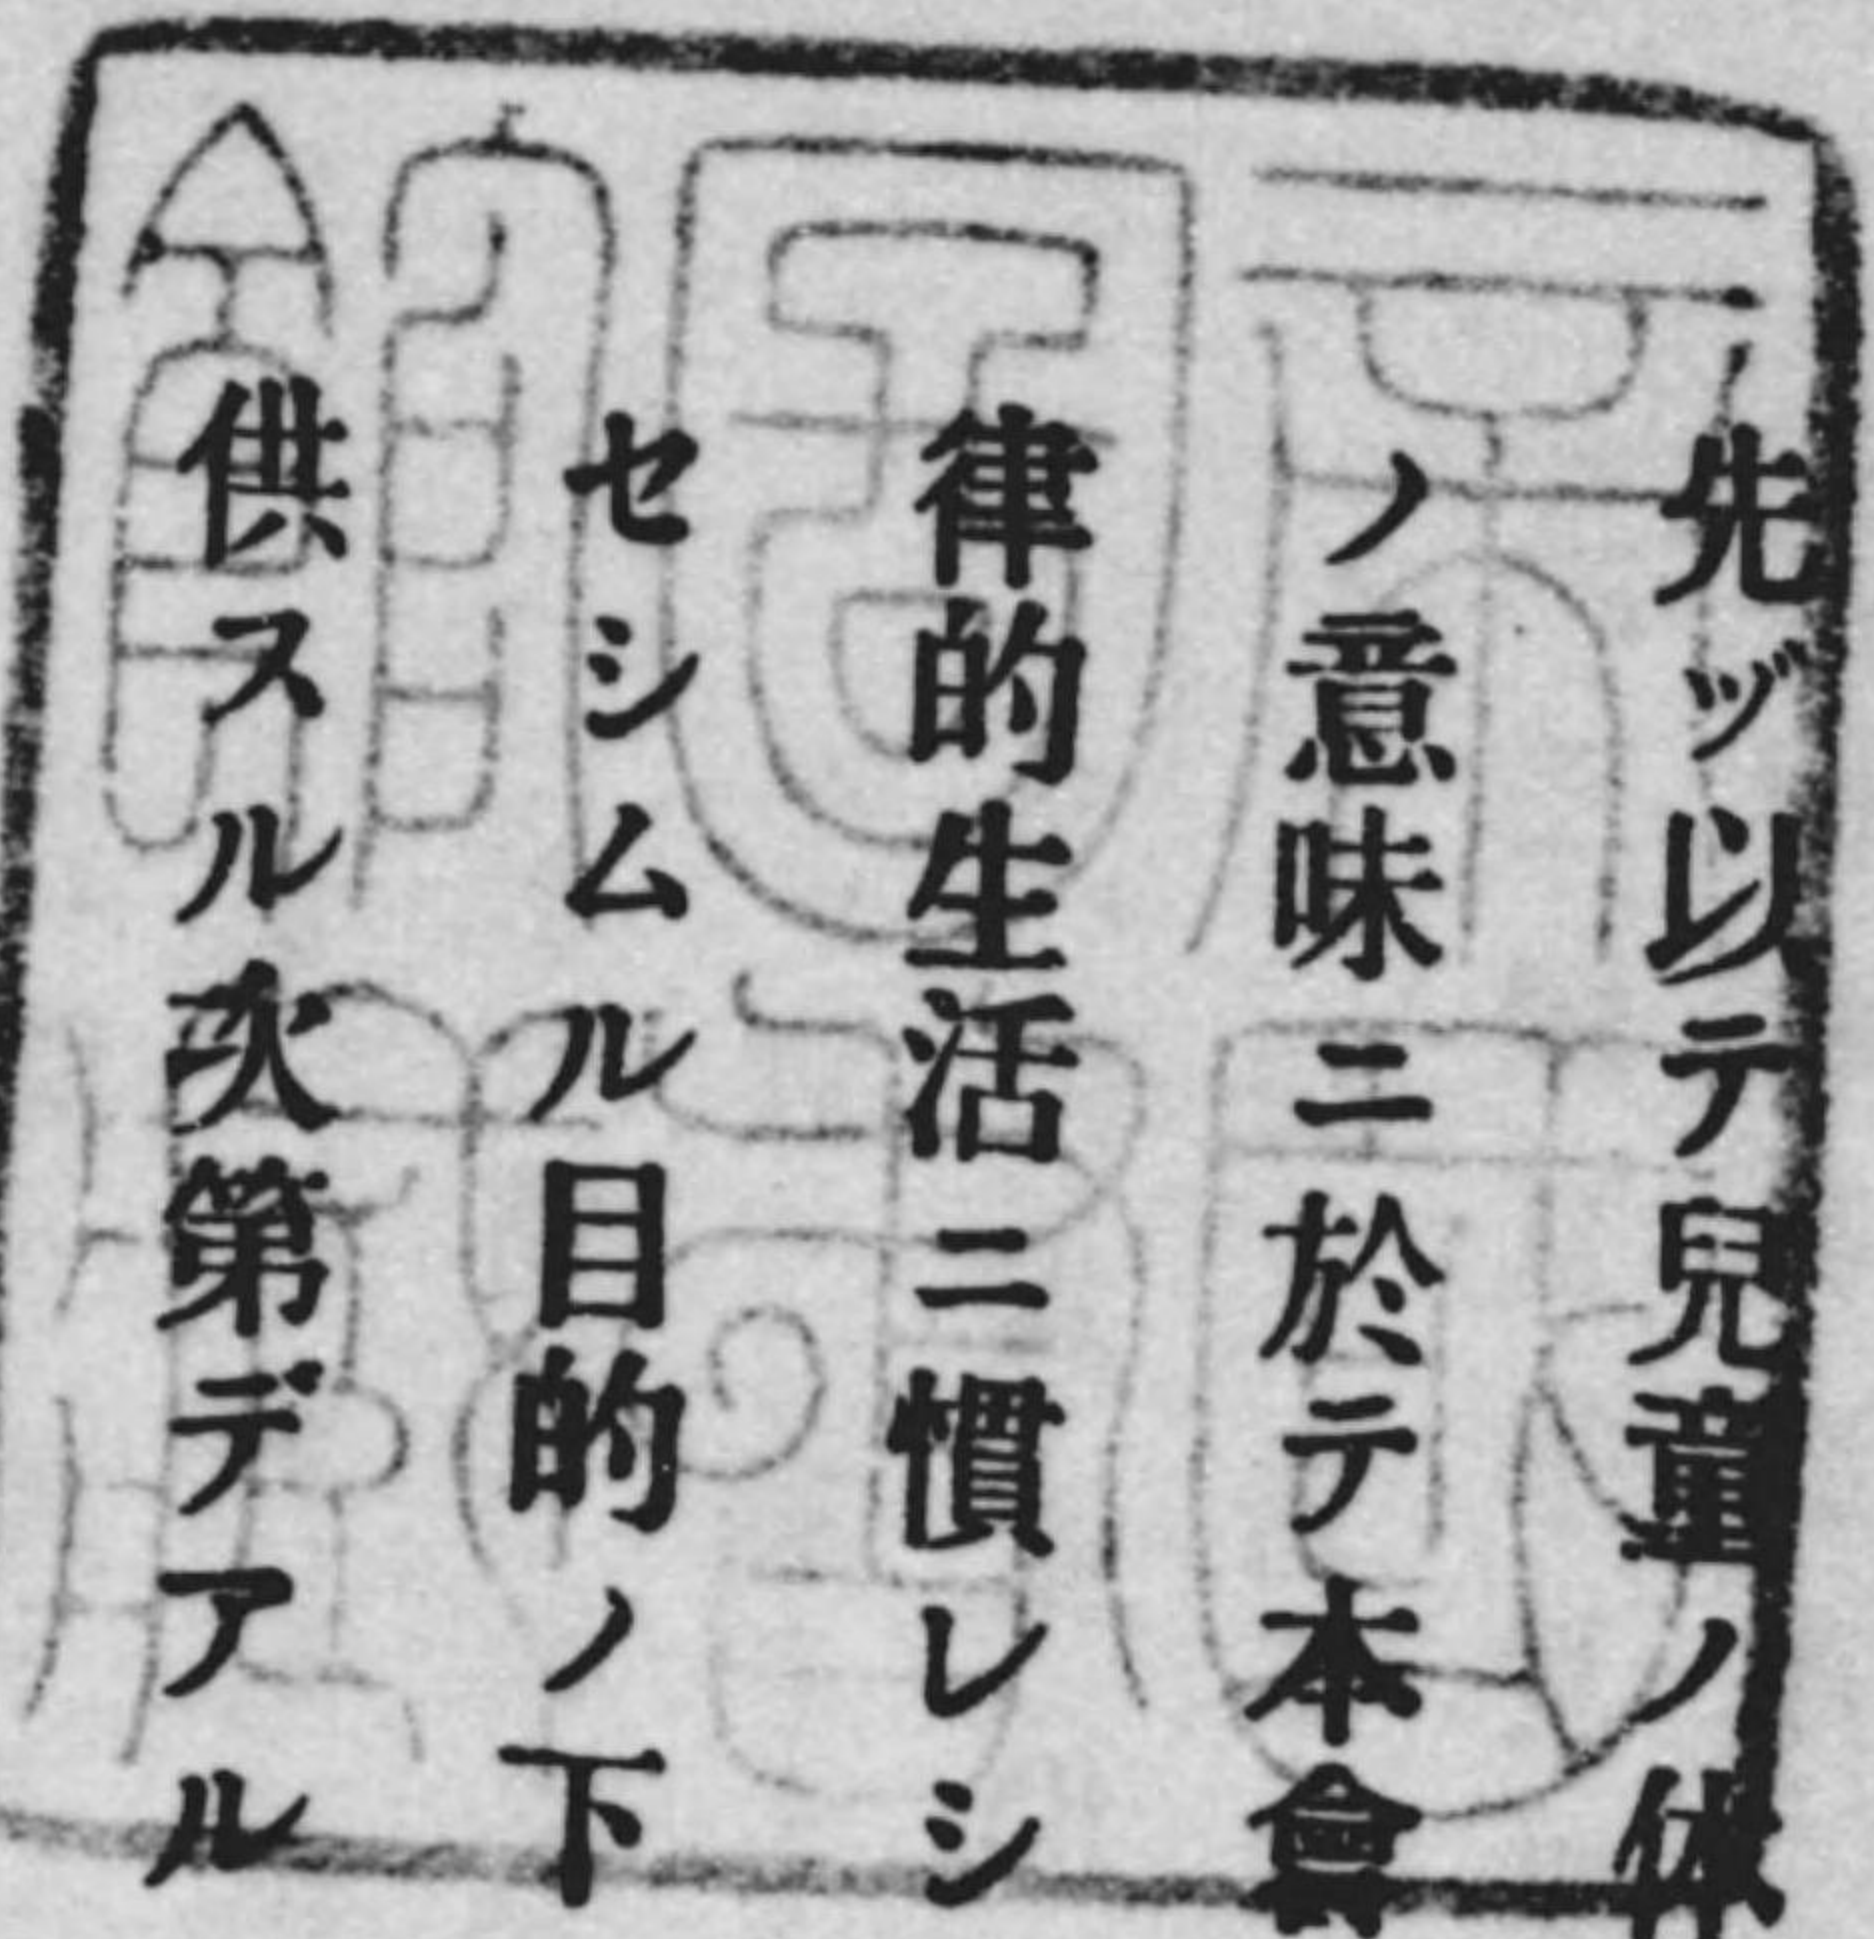 先ヅ以テ兒童ノ体
ノ意味ニ於テ本會
律的生活ニ慣レシ
セシムル目的ノ下
供スル次第デアル